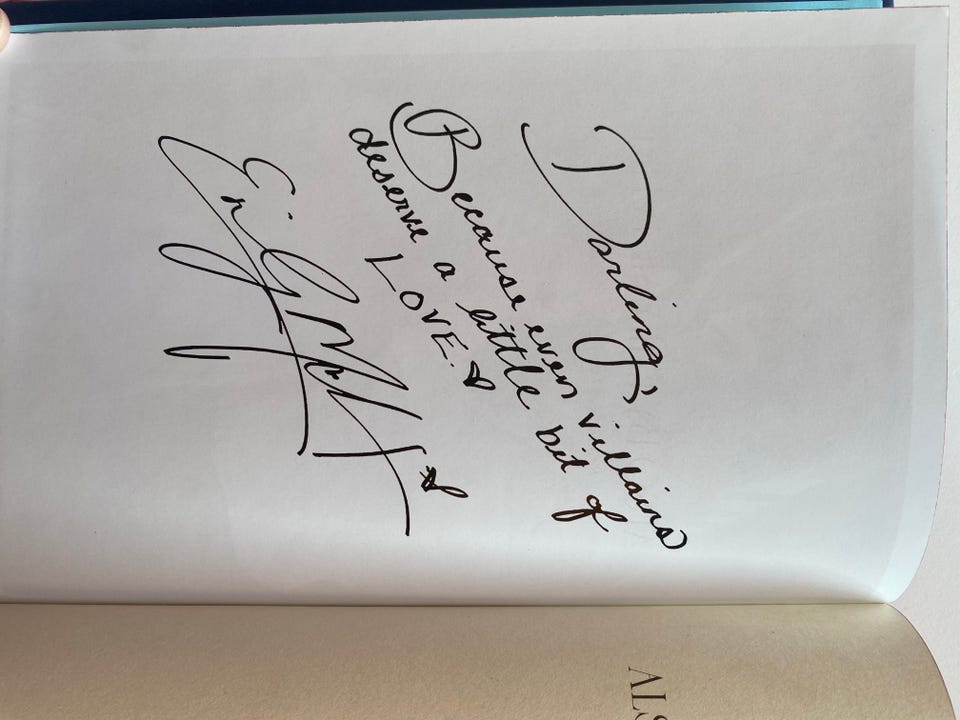 Darling,
Because even villains
deserve a little bit of
LOVE.
ALS